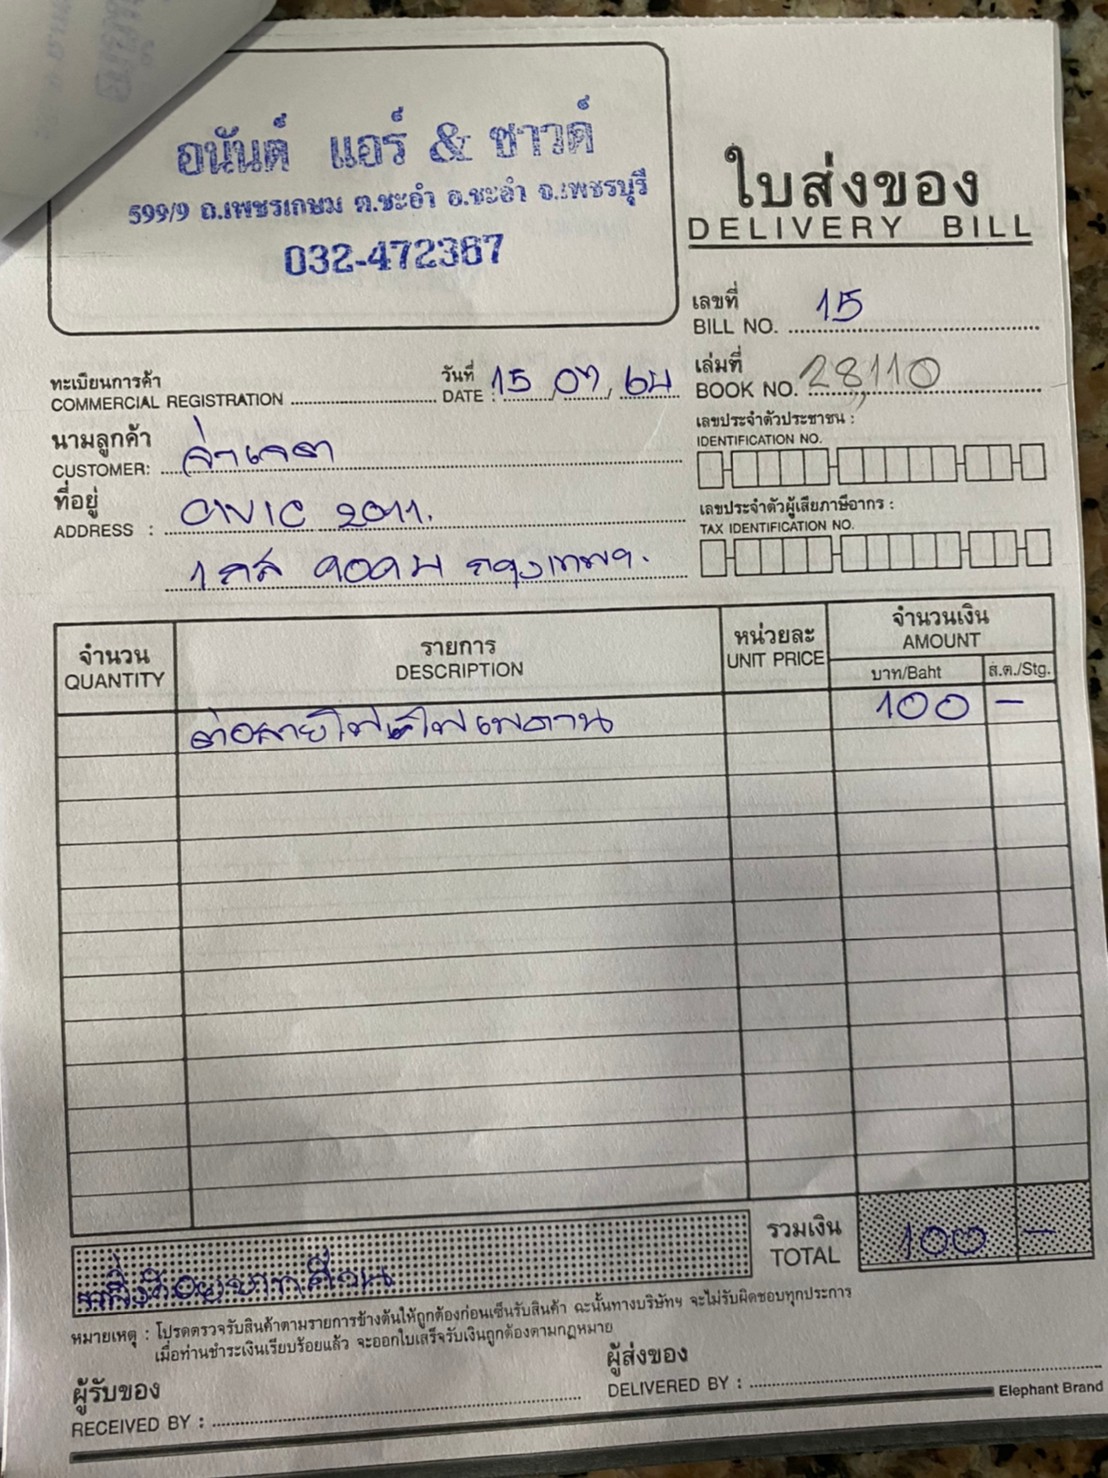 อนันต์ แอร์ & ซาวด์
599/9 ถ.เพชรเกษม ต.ชะอำ อ.ชะอำ จ.เพชรบุรี
032-472367
ใบส่งของ
DELIVERY BILL
เลขที่
BILL NO. 15
ทะเบียนการค้า
COMMERCIAL REGISTRATION
วันที่
DATE : 15 / 07 / 64
เล่มที่
BOOK NO. 28,110
นามลูกค้า
CUSTOMER: จ่าเจตา
เลขประจำตัวประชาชน :
IDENTIFICATION NO.
ที่อยู่
ADDRESS : CIVIC 2011.
เลขประจำตัวผู้เสียภาษีอากร :
TAX IDENTIFICATION NO.
กรุงเทพฯ.
จำนวน
QUANTITY
รายการ
DESCRIPTION
หน่วยละ
UNIT PRICE
จำนวนเงิน
AMOUNT
บาท/Baht
ส.ต./Stg.
ต่อสายไฟ ไฟเพดาน 100 -
รวมเงิน
TOTAL
100 -
หนึ่งร้อยบาทถ้วน
หมายเหตุ : โปรดตรวจรับสินค้าตามรายการข้างต้นให้ถูกต้องก่อนเซ็นรับสินค้า ฉะนั้นทางบริษัทฯ จะไม่รับผิดชอบทุกประการ
เมื่อท่านชำระเงินเรียบร้อยแล้ว จะออกใบเสร็จรับเงินถูกต้องตามกฎหมาย
ผู้รับของ
RECEIVED BY :
ผู้ส่งของ
DELIVERED BY :
Elephant Brand